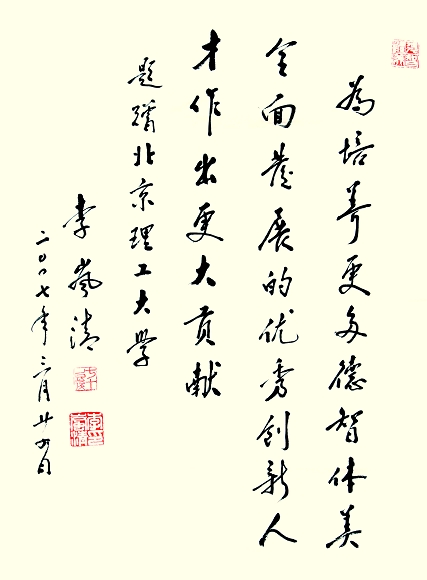 為培养更多德智体美
全面發展的优秀创新人
才作出更大贡献
题赠北京理工大学
李岚清
二〇〇七年三月廿四日